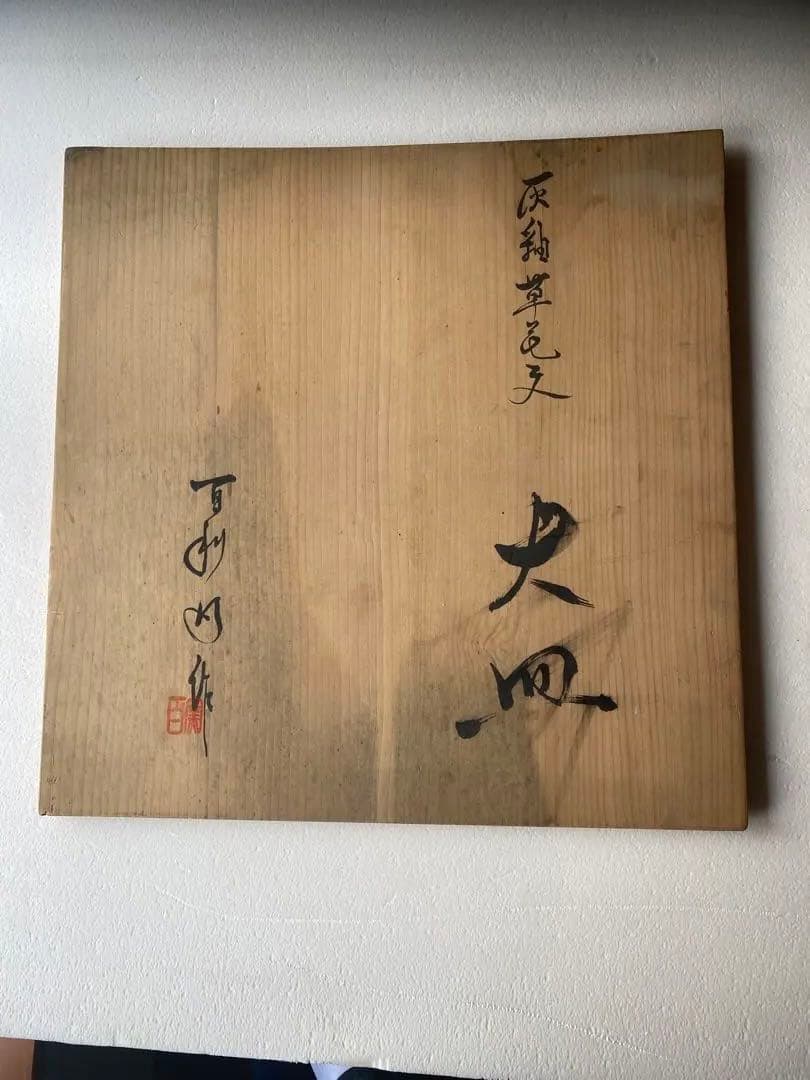 灰釉草花文
大皿
百利口作